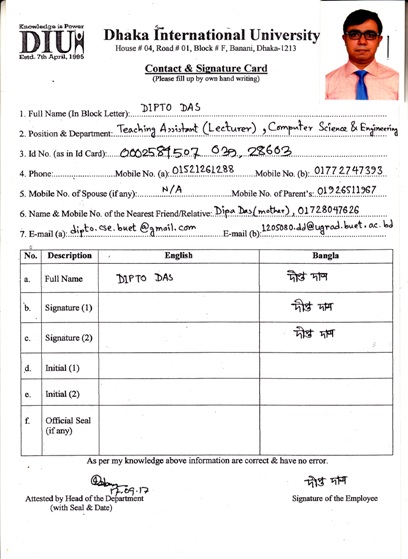 Knowledge is Power
DIU
Estd. 7th April, 1995
Dhaka International University
House # 04, Road # 01, Block # F, Banani, Dhaka-1213
Contact & Signature Card
(Please fill up by own hand writing)
1. Full Name (In Block Letter): DIPTO DAS
2. Position & Department: Teaching Assistant (Lecturer), Computer Science & Engineering
3. Id No. (as in Id Card): 0002584507 039, 28603
4. Phone: Mobile No. (a): 01521261288 Mobile No. (b): 01772747393
5. Mobile No. of Spouse (if any): N/A Mobile No. of Parent's: 01926511967
6. Name & Mobile No. of the Nearest Friend/Relative: Dipa Das (mother), 01728047626
7. E-mail (a): dipto.cse.buet@gmail.com E-mail (b): 1205080.dd@ugrad.buet.ac.bd
No. Description English Bangla
a. Full Name DIPTO DAS দীপ্ত দাস
b. Signature (1) দীপ্ত দাস
c. Signature (2) দীপ্ত দাস
d. Initial (1)
e. Initial (2)
f. Official Seal
(if any)
As per my knowledge above information are correct & have no error.
17.09.17 দীপ্ত দাস
Attested by Head of the Department Signature of the Employee
(with Seal & Date)